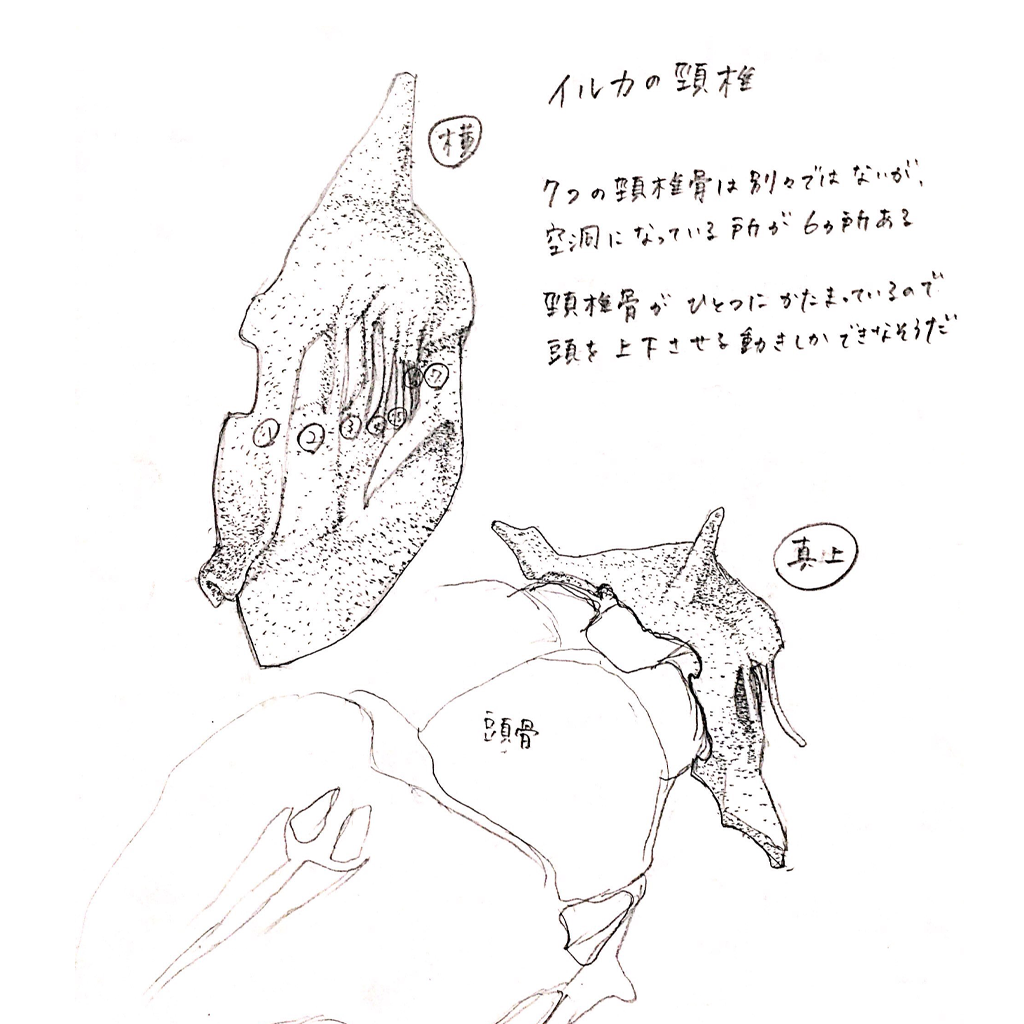 イルカの頚椎
横
7つの頚椎骨は別々ではないが、
空洞になっている所が6ヵ所ある
頚椎骨がひとつにかたまっているので
頭を上下させる動きしかできなそうだ
① ② ③ ④ ⑤ ⑥ ⑦
真上
頭骨